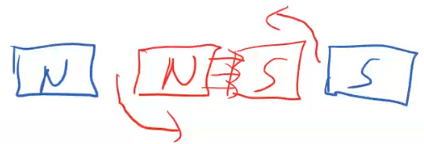 N N S S